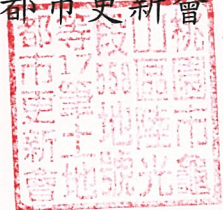 都市更新會
桃園市龜
山區陸光
段地號
等17筆土地
都市更新會